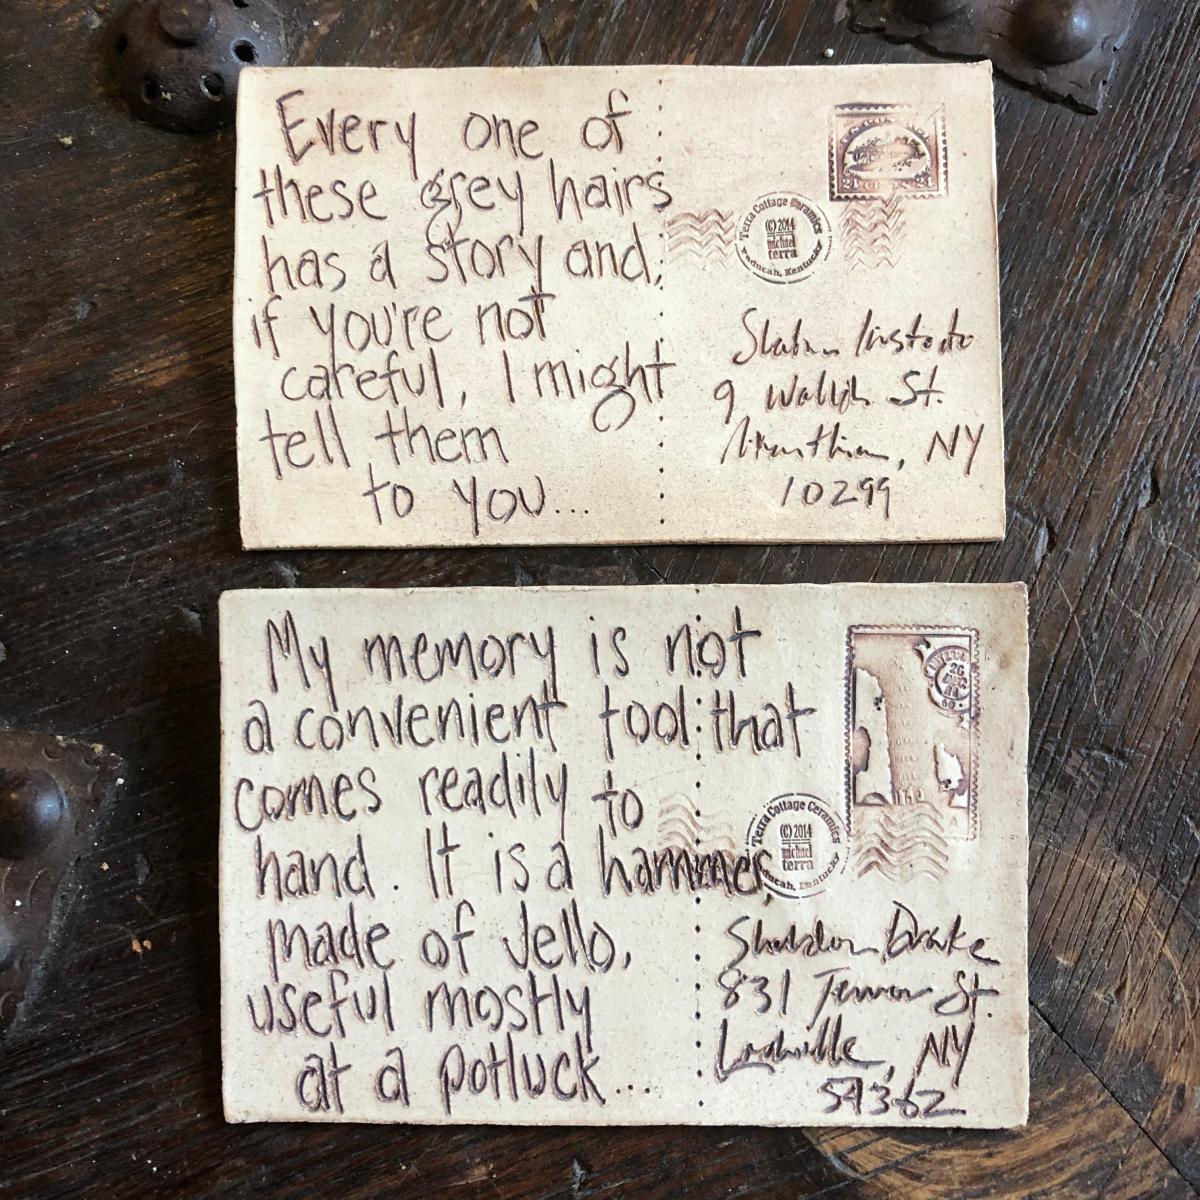 Every one of
these grey hairs
has a story and,
if you're not
careful, I might
tell them
to you...
Terra Cottage Ceramics
(C) 2014
michael
terra
Paducah, Kentucky
9 St.
, NY
10299
My memory is not
a convenient tool that
comes readily to
hand. It is a hammer,
made of Jello,
useful mostly
at a potluck...
Terra Cottage Ceramics
(C) 2014
michael
terra
Paducah, Kentucky
Drake
831 St.
, NY